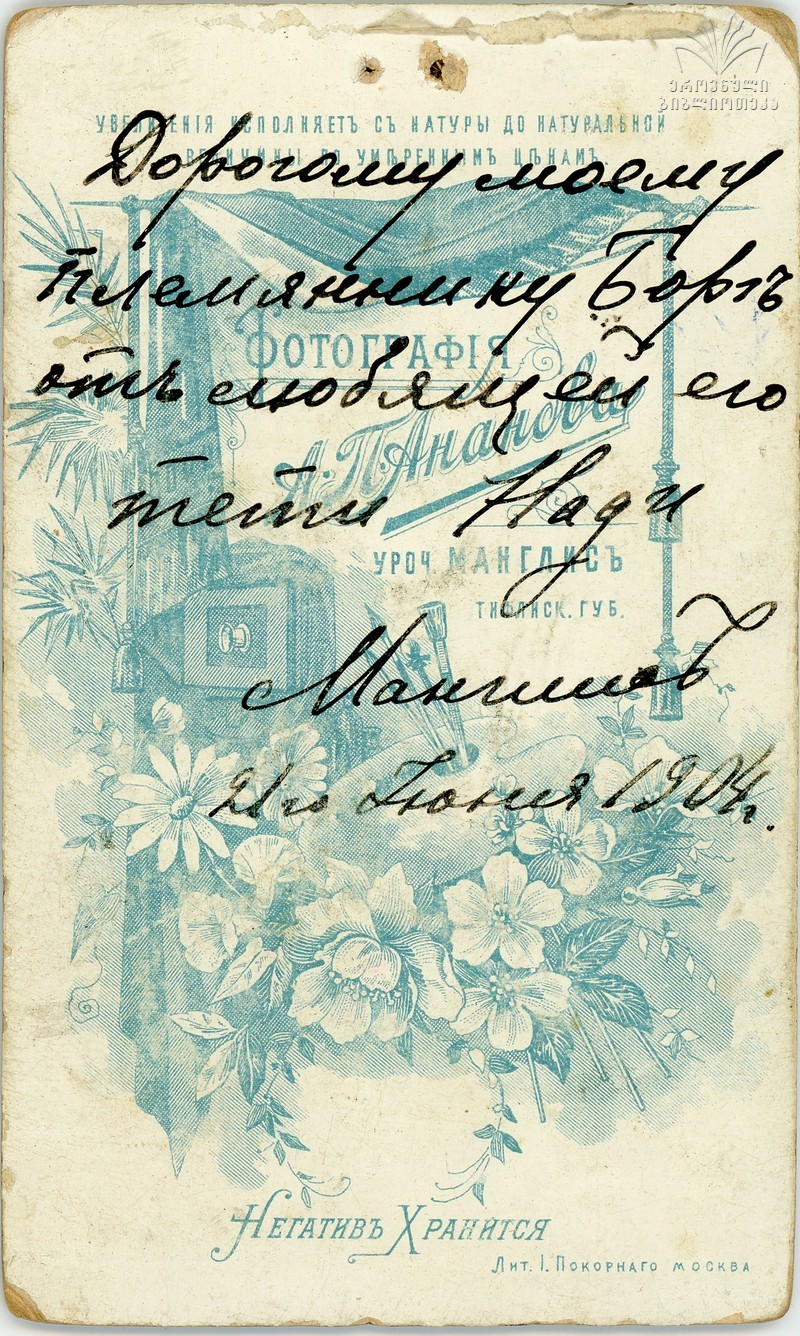 ეროვნული
ბიბლიოთეკა
УВЕЛИЧЕНІЯ ИСПОЛНЯЕТЪ СЪ НАТУРЫ ДО НАТУРАЛЬНОЙ
ВЕЛИЧИНЫ ПО УМѢРЕННЫМЪ ЦѢНАМЪ.
Дорогому моему
племяннику Борѣ
ФОТОГРАФІЯ
отъ любящей его
А. П. Ананова
тети Нади
УРОЧ. МАНГЛИСЪ
ТИФЛИСК. ГУБ.
Манглисъ
21го Іюня 1904г.
НЕГАТИВЪ ХРАНИТСЯ
Лит. І. Покорнаго Москва